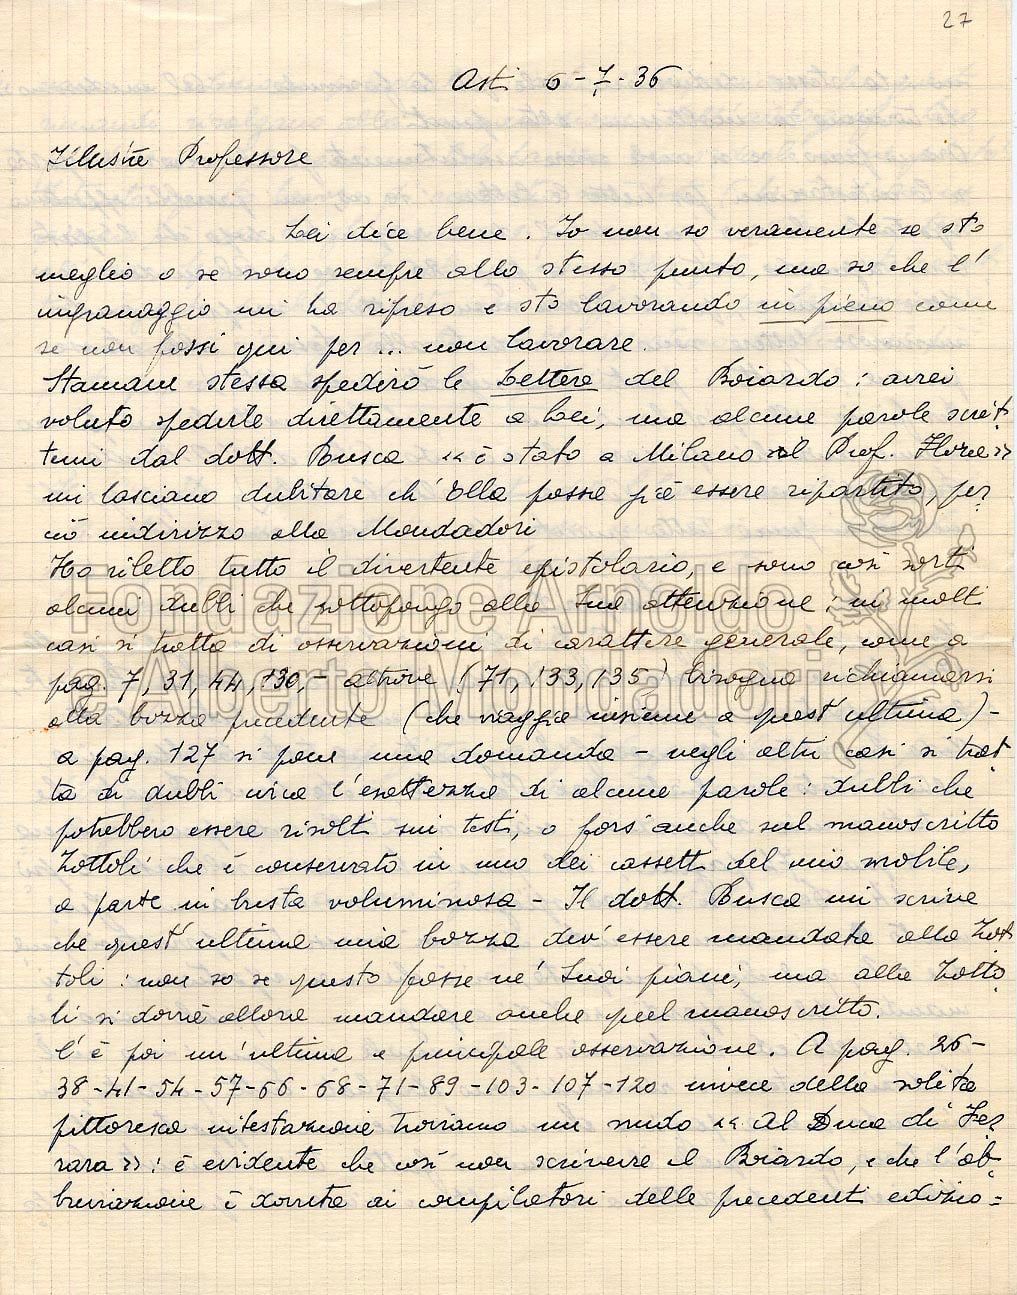 27
Asti 6-7-36
Illustre Professore
Lei dice bene. Io non so veramente se sto
meglio o se sono sempre allo stesso punto, ma so che l'
ingranaggio mi ha ripreso e sto lavorando in pieno come
se non fossi qui per... non lavorare.
Stamane stessa spedirò le Lettere del Boiardo: avrei
voluto spedirle direttamente a Lei, ma alcune parole scrit
temi dal dott. Busca «è stato a Milano il Prof. Flora»
mi lasciano dubitare ch'Ella possa già essere ripartito, per
ciò indirizzo alla Mondadori
Ho riletto tutto il divertente epistolario, e sono così sorti
alcuni dubbi che sottopongo alla Sua attenzione: in molti
casi si tratta di osservazioni di carattere generale, come a
pag. 7, 31, 44, 130, - altrove (71, 133, 135) bisogna richiamarsi
alla bozza precedente (che viaggia insieme a quest'ultima) -
a pag. 127 si pone una domanda - negli altri casi si trat
ta di dubbi circa l'esattezza di alcune parole: dubbi che
potrebbero essere risolti sui testi, o fors'anche sul manoscritto
Zottoli che è conservato in uno dei cassetti del mio mobile,
a parte in busta voluminosa - Il dott. Busca mi scrive
che quest'ultima mia bozza dev'essere mandata allo Zot
toli: non so se questo fosse ne' Suoi piani, ma allo Zotto
li si dovrà allora mandare anche quel manoscritto.
C'è poi un'ultima e principale osservazione. A pag. 26-
38-41-54-57-66-68-71-89-103-107-120 invece della solita
pittoresca intestazione troviamo un nudo «Al Duca di Fer
rara»: è evidente che così non scrivesse il Boiardo, e che l'ab
breviazione è dovuta ai compilatori delle precedenti edizio=
Fondazione Arnoldo
e Alberto Mondadori